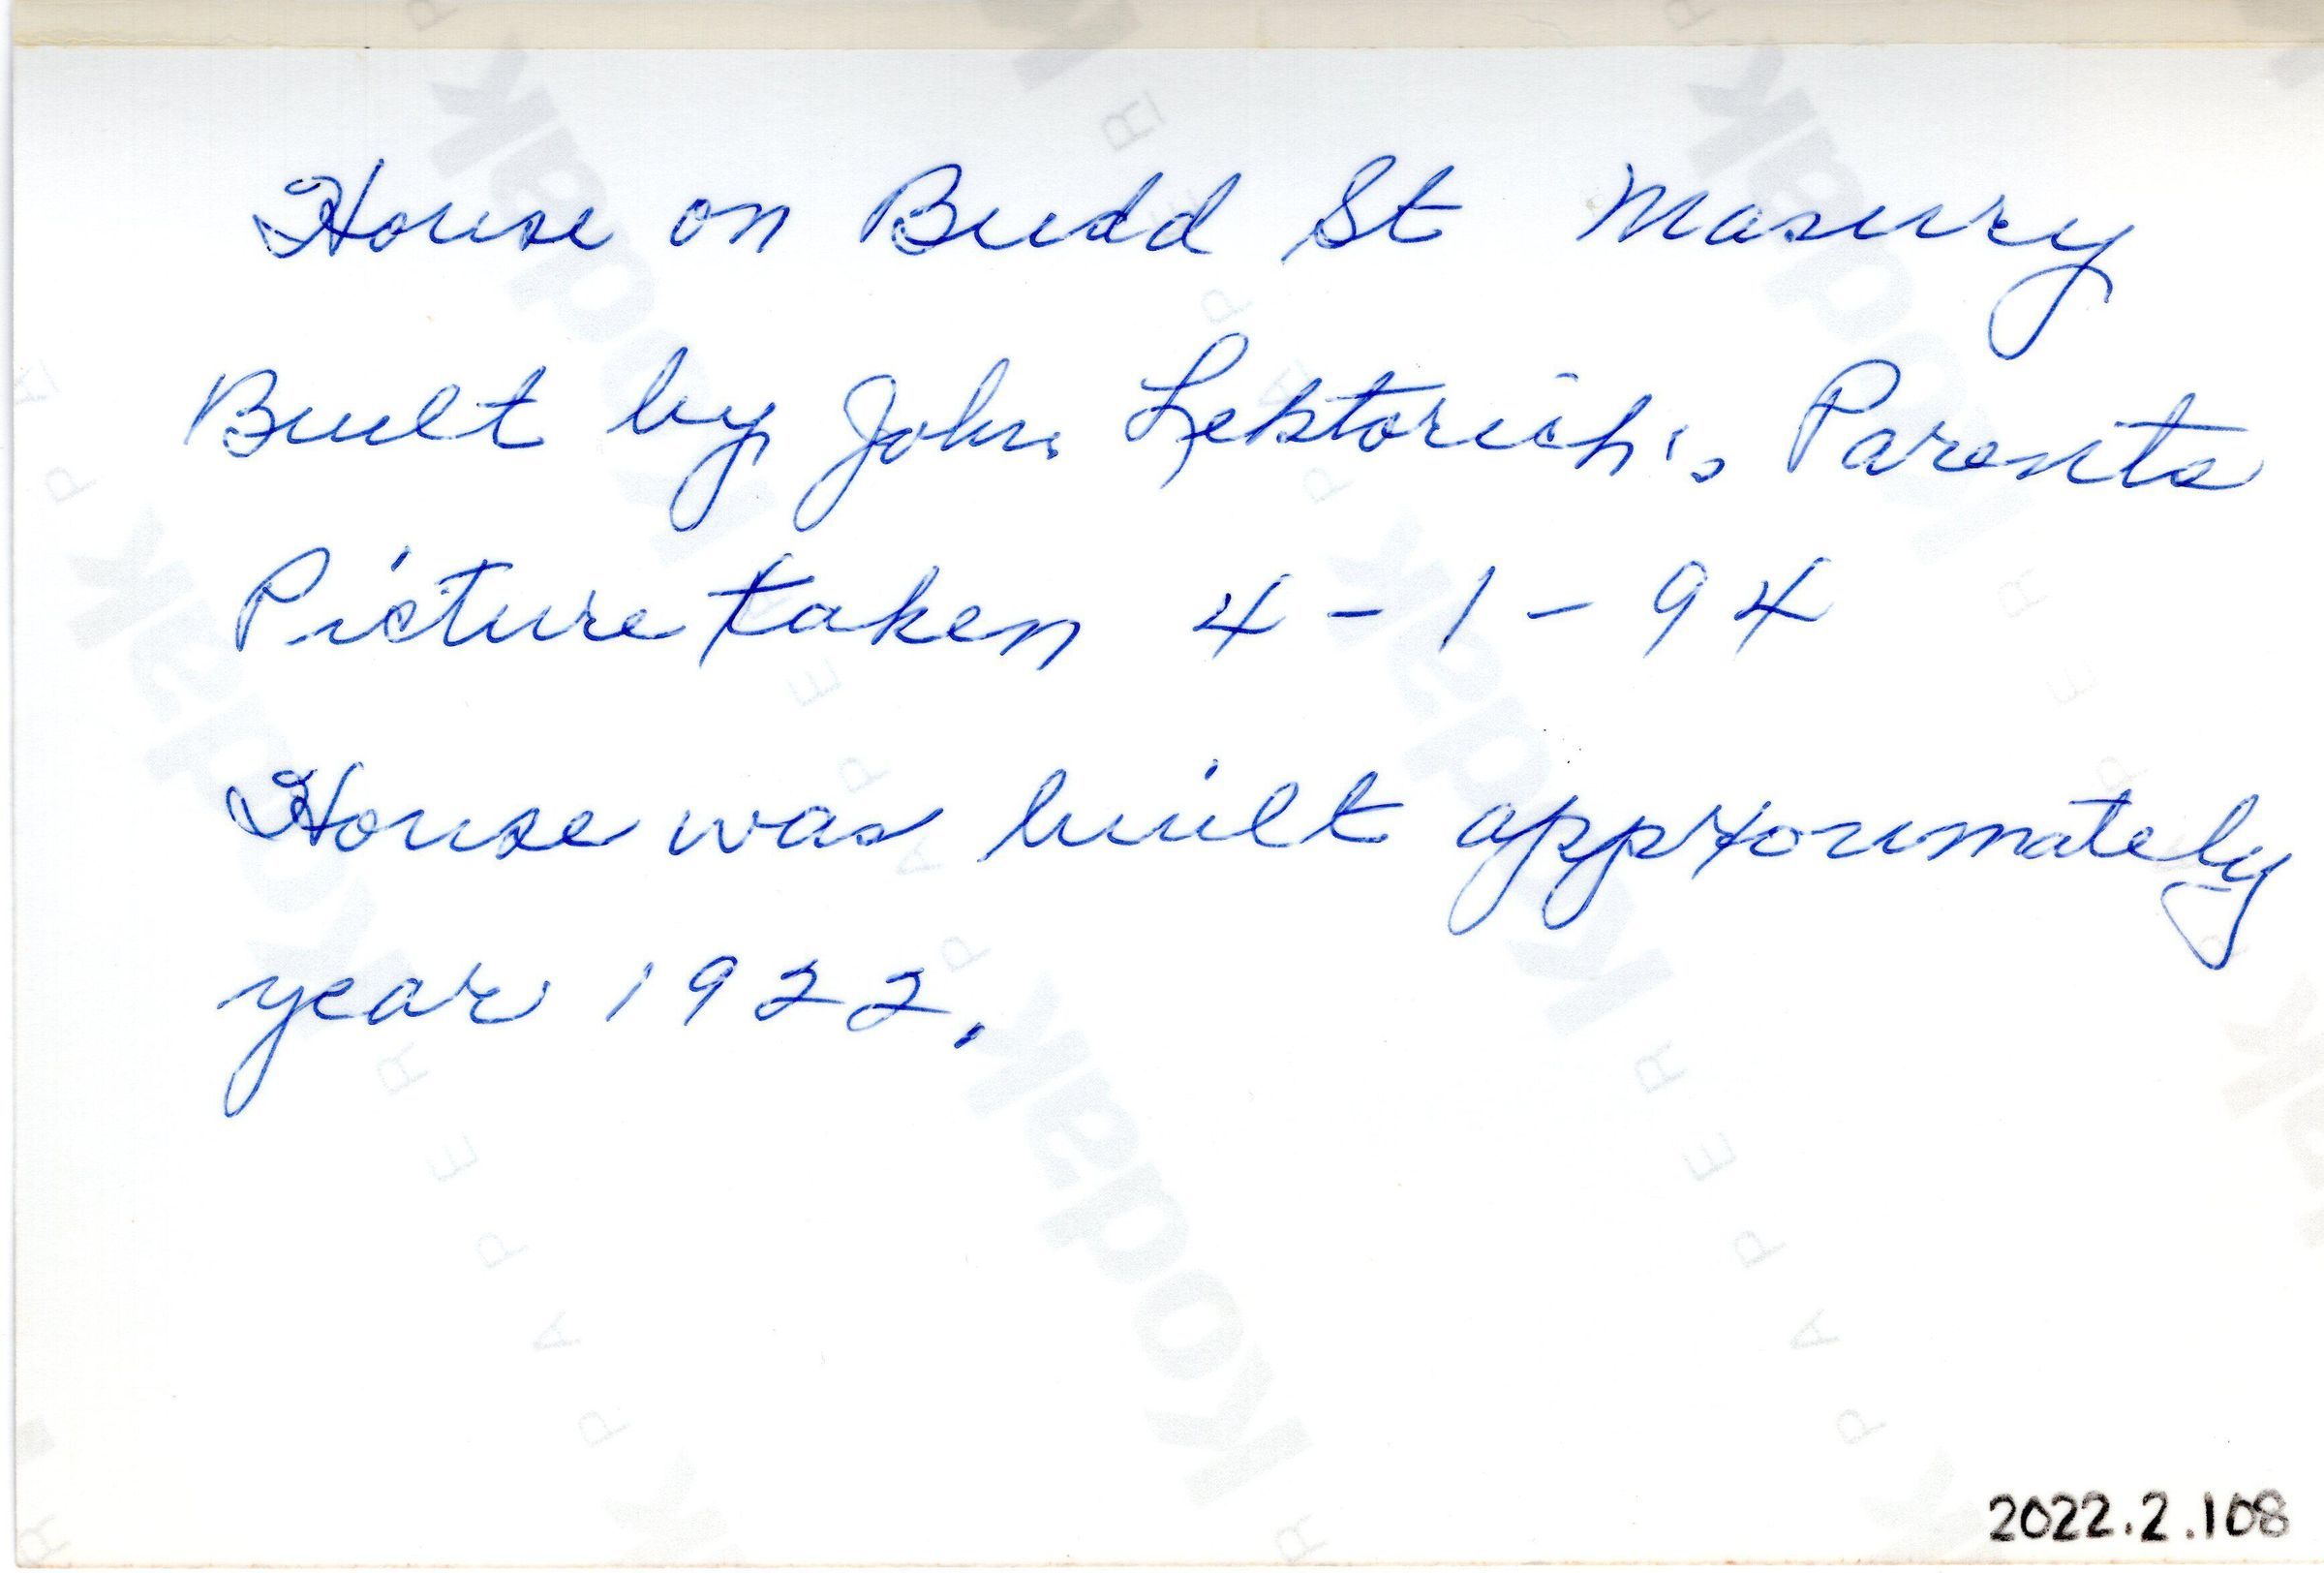 House on Budd St Masury
Built by John Lektorich's Parents
Picture taken 4-1-94
House was built approximately
year 1922.
2022.2.108
Kodak
PAPER